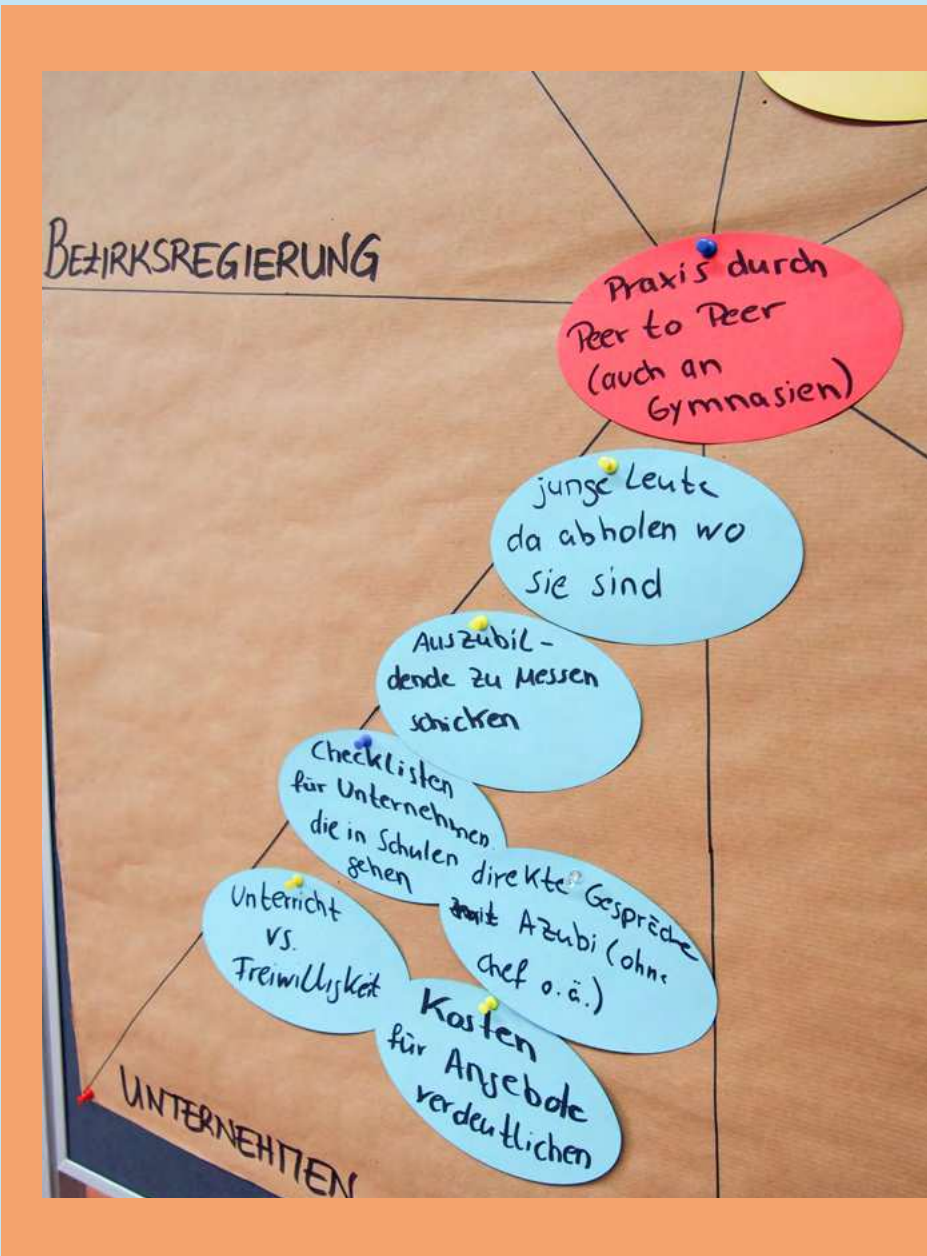 BEZIRKSREGIERUNG
Praxis durch
Peer to Peer
(auch an
Gymnasien)
junge Leute
da abholen wo
sie sind
Auszubil-
dende zu Messen
schicken
Checklisten
für Unternehmen
die in Schulen
gehen
direkte Gespräche
mit Azubi (ohne
Chef o.ä.)
Unterricht
vs.
Freiwilligkeit
Kosten
für Angebote
verdeutlichen
UNTERNEHMEN